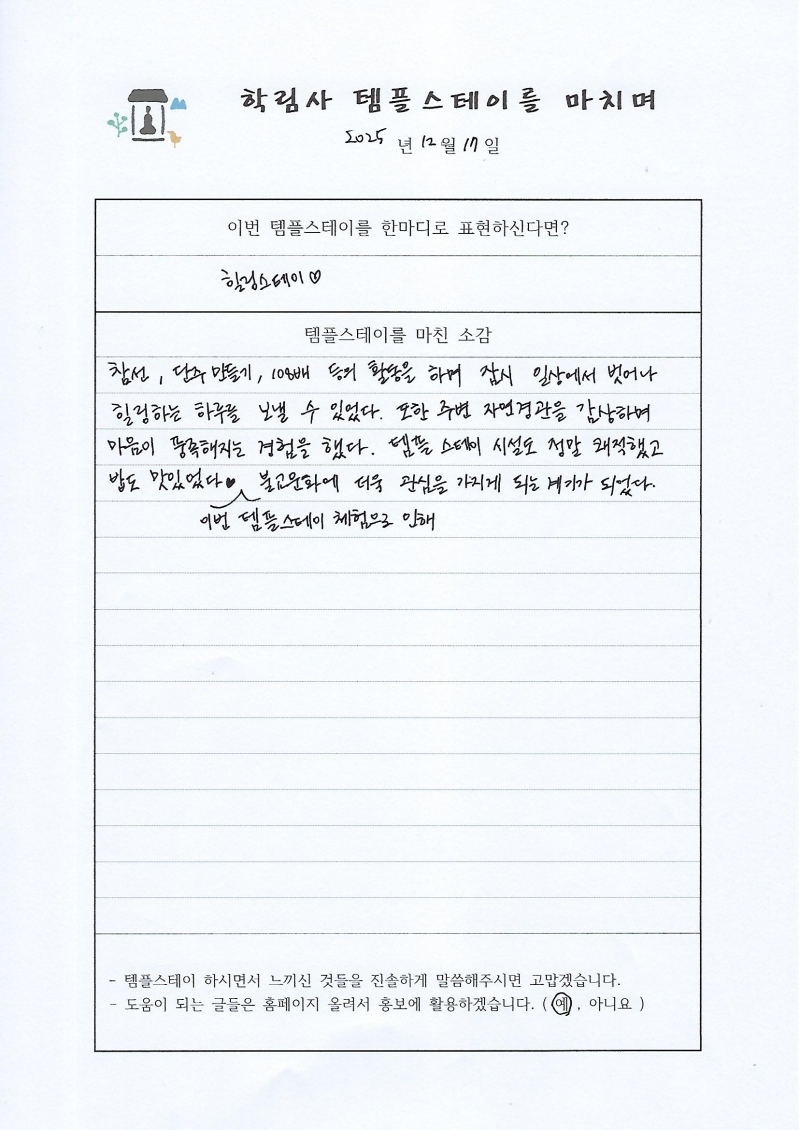 학림사 템플스테이를 마치며
2025 년 12 월 17 일
이번 템플스테이를 한마디로 표현하신다면?
힐링스테이♡
템플스테이를 마친 소감
참선, 단주 만들기, 108배 등의 활동을 하며 잠시 일상에서 벗어나
힐링하는 하루를 보낼 수 있었다. 또한 주변 자연경관을 감상하며
마음이 풍족해지는 경험을 했다. 템플 스테이 시설도 정말 쾌적했고
밥도 맛있었다♥ 불교문화에 더욱 관심을 가지게 되는 계기가 되었다.
이번 템플스테이 체험으로 인해
- 템플스테이 하시면서 느끼신 것들을 진솔하게 말씀해주시면 고맙겠습니다.
- 도움이 되는 글들은 홈페이지 올려서 홍보에 활용하겠습니다. ( 예 , 아니요 )